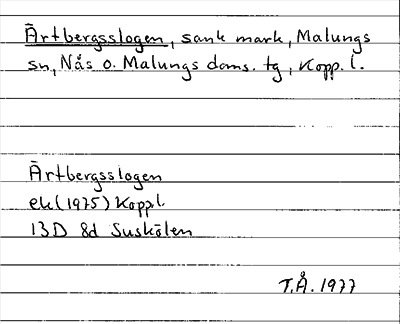 Ärtbergsslogen, sank mark, Malungs
sn, Nås o. Malungs doms. tg, Kopp. l.
Ärtbergsslogen
ek (1975) Kopp l.
13D 8d Suskölen
T.Å. 1977